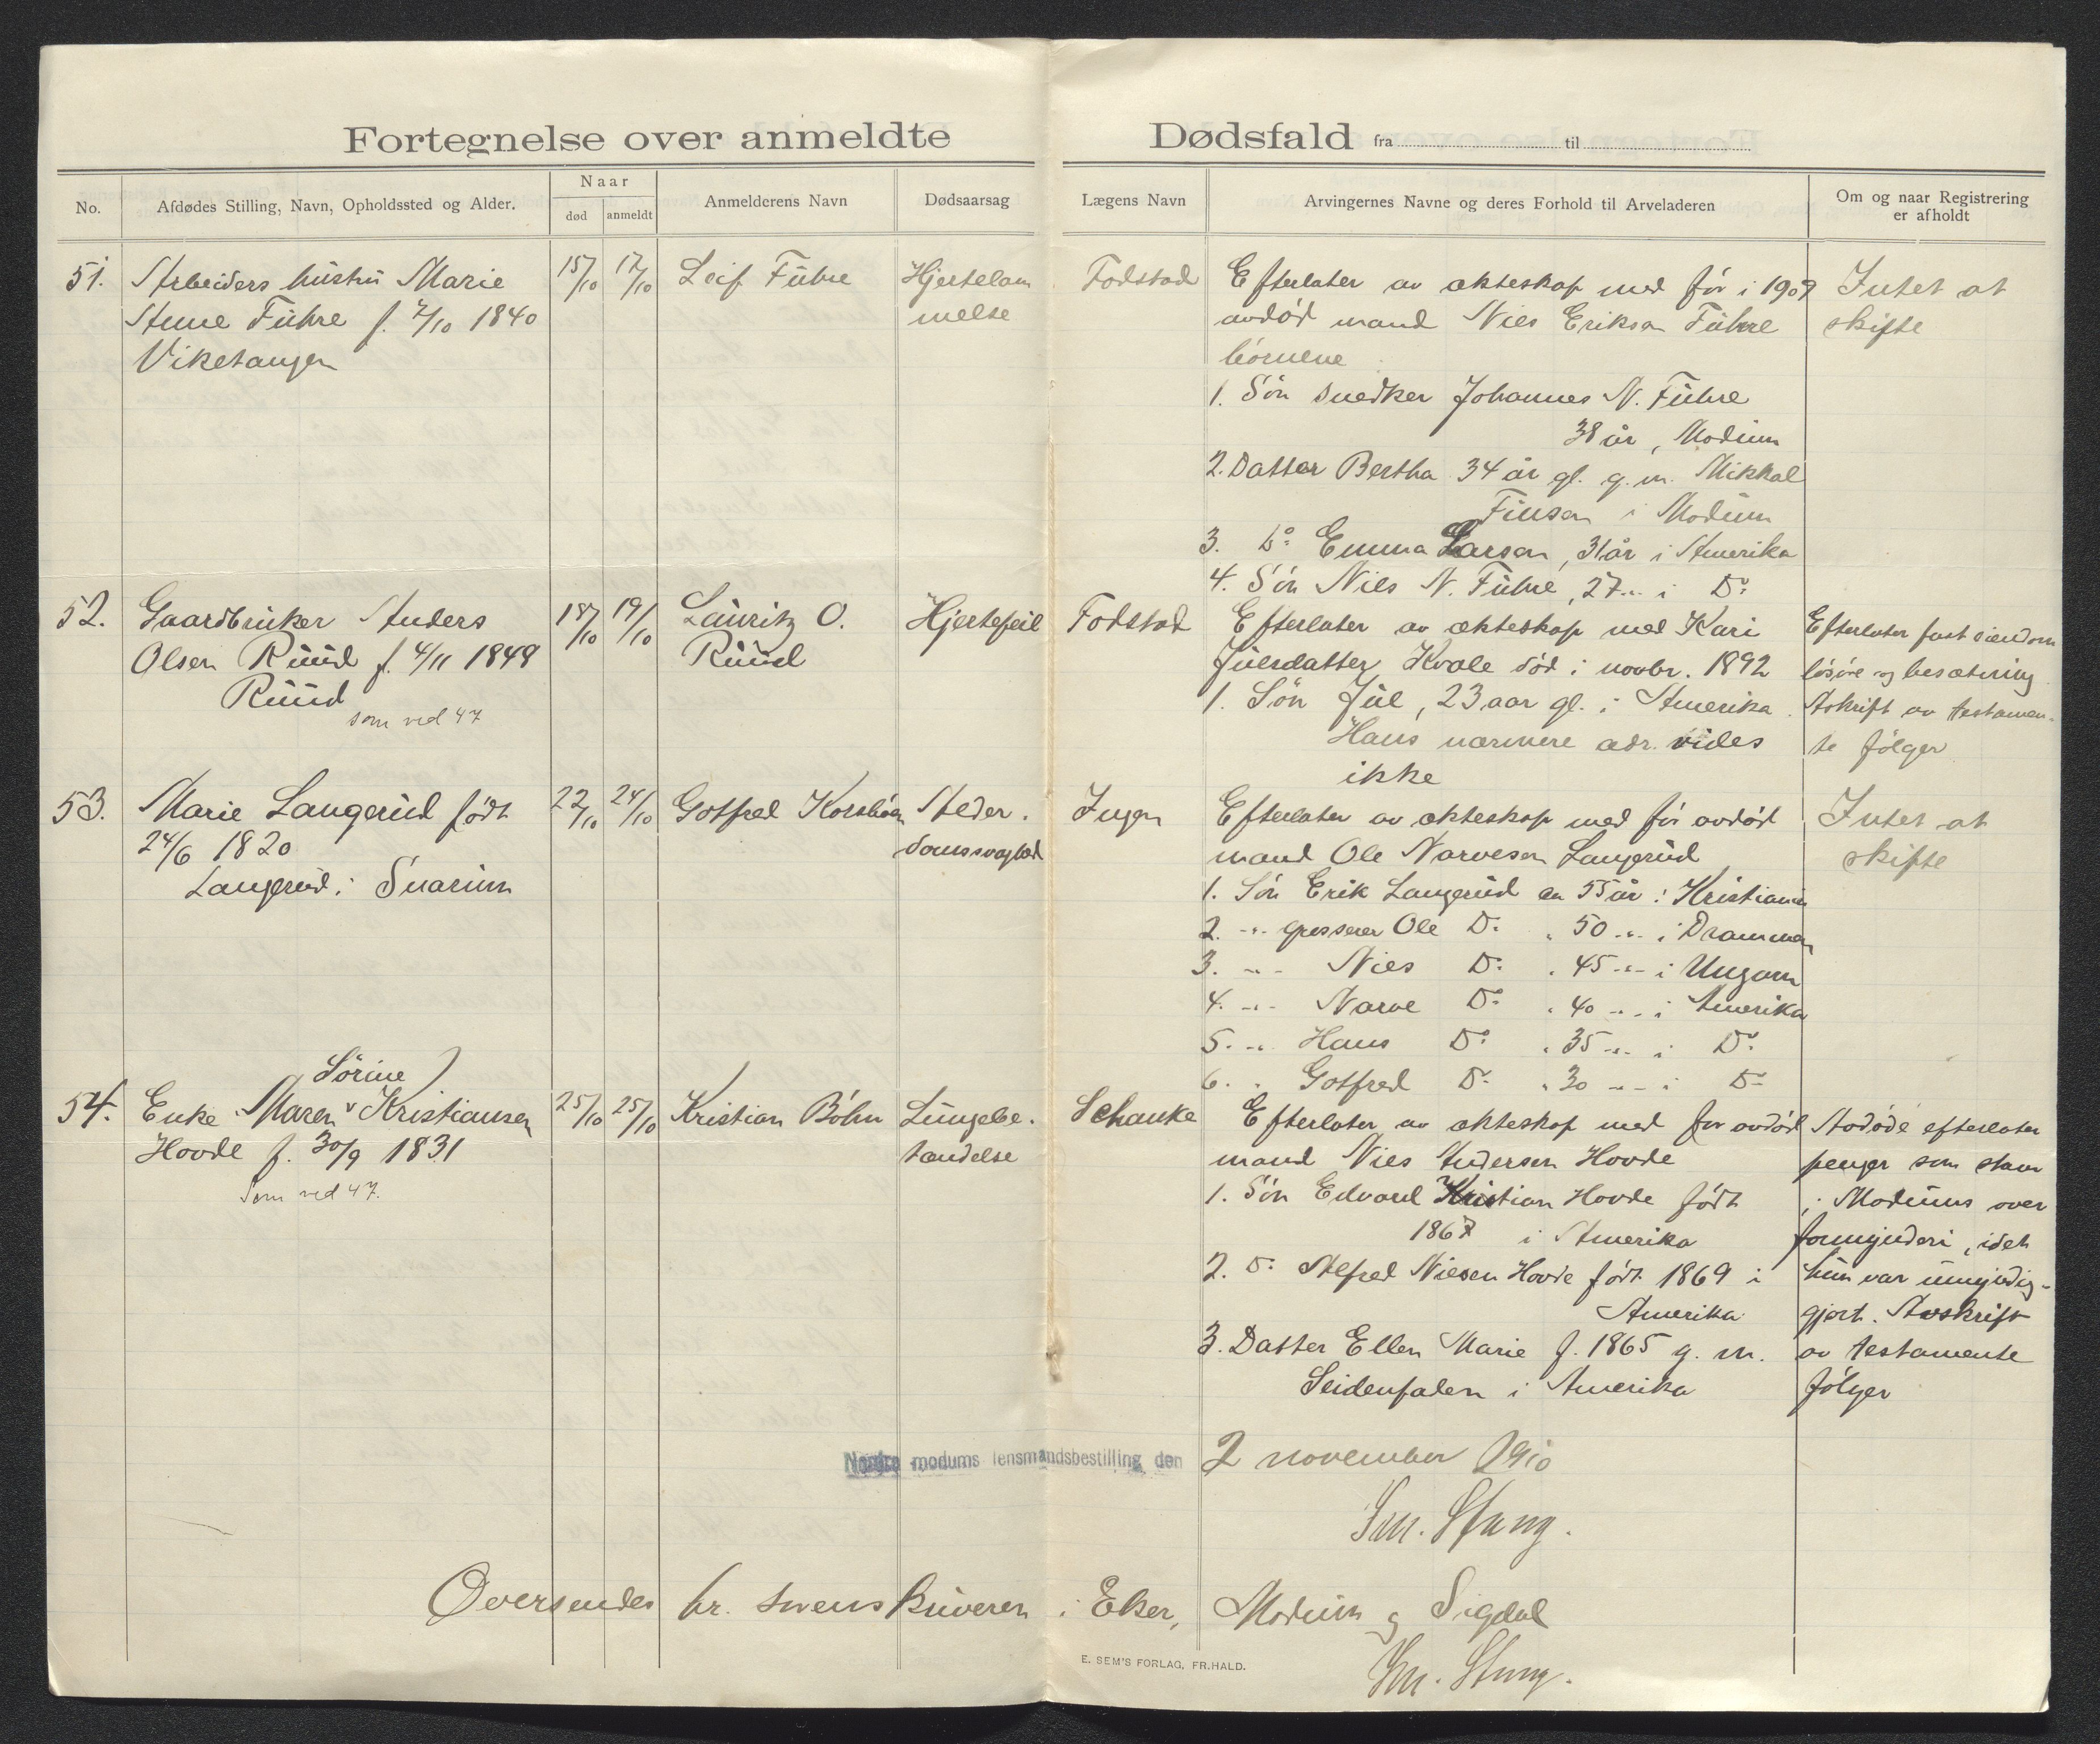 Fortegnelse over anmeldte Dødsfald fra til
No.
Afdødes Stilling, Navn, Opholdssted og Alder.
Naar
død
anmeldt
Anmelderens Navn
Dødsaarsag
Lægens Navn
Arvingernes Navne og deres Forhold til Arveladeren
Om og naar Registrering
er afholdt
51. Arbeiders hustru Marie
Anne Führe f. 7/10 1840
Viketangen
15/10 17/10 Leif Führe
Hjertelam
melse
Fodstad
Efterlater av ekteskap med før i 1907
avdød mand Niels Eriksen Führe
børnene
1. Søn snedker Johannes N. Führe
38 år, Modum
2. Datter Bertha 34 år gl. g. m. Mikkal
Finsen i Modum
3. Do Emma Larsen, 31 år i Amerika
4. Søn Niels N. Führe, 27 -"- i Do
Intet at
skifte
52. Gaardbruker Anders
Olsen Ruud f. 4/11 1849
Ruud
som ved 47
18/10 19/10 Lauritz O.
Ruud
Hjertefeil
Fodstad
Efterlater av ekteskap med Kari
Juelsdatter Kvale død i novbr. 1892
1. Søn Jul, 23 aar gl. i Amerika
Hans nærmere adr. vides
ikke
Efterlater fast eiendom
løsøre og besætning
Avskrift av testamen-
te følger
53. Marie Langerud født
24/6 1820
Langerud i Snarum
22/10 24/10 Gotfred Korsbøen
Alder-
domssvaghed
Ingen
Efterlater av ekteskap med før avdød
mand Ole Narvesen Langerud
1. Søn Erik Langerud ca 55 år i Kristiania
2. -"- grosserer Ole Do " 50 -"- i Drammen
3. -"- Niels Do " 45 -"- i Ungarn
4. -"- Narve Do " 40 -"- i Amerika
5. -"- Hans Do " 35 -"- i Do
6. " Gotfred Do " 30 -"- i Do
Intet at
skifte
Sørine
54. Enke Maren Kristiansen
Hovde f. 30/9 1831
Som ved 47.
25/10 25/10 Kristian Bøhn
Lungebe-
tændelse
Schanke
Efterlater av ekteskap med før avdød
mand Niels Andersen Hovde
1. Søn Edvard Kristian Hovde født
1867 i Amerika
2. Do Alfred Nielsen Hovde født 1869 i
Amerika
3. Datter Ellen Marie f. 1865 g. m.
Seidenfaden i Amerika
Avdøde efterlater
penger som staar
i Modums over
formynderi, idet
hun var umyndig-
gjort. Avskrift
av testamente
følger
Nordre modums lensmandsbestilling den 2 november 1910
Sm. Stang.
Oversendes hr. sorenskriveren i Eker, Modum og Sigdal
Sm. Stang.
E. SEM'S FORLAG, FR.HALD.